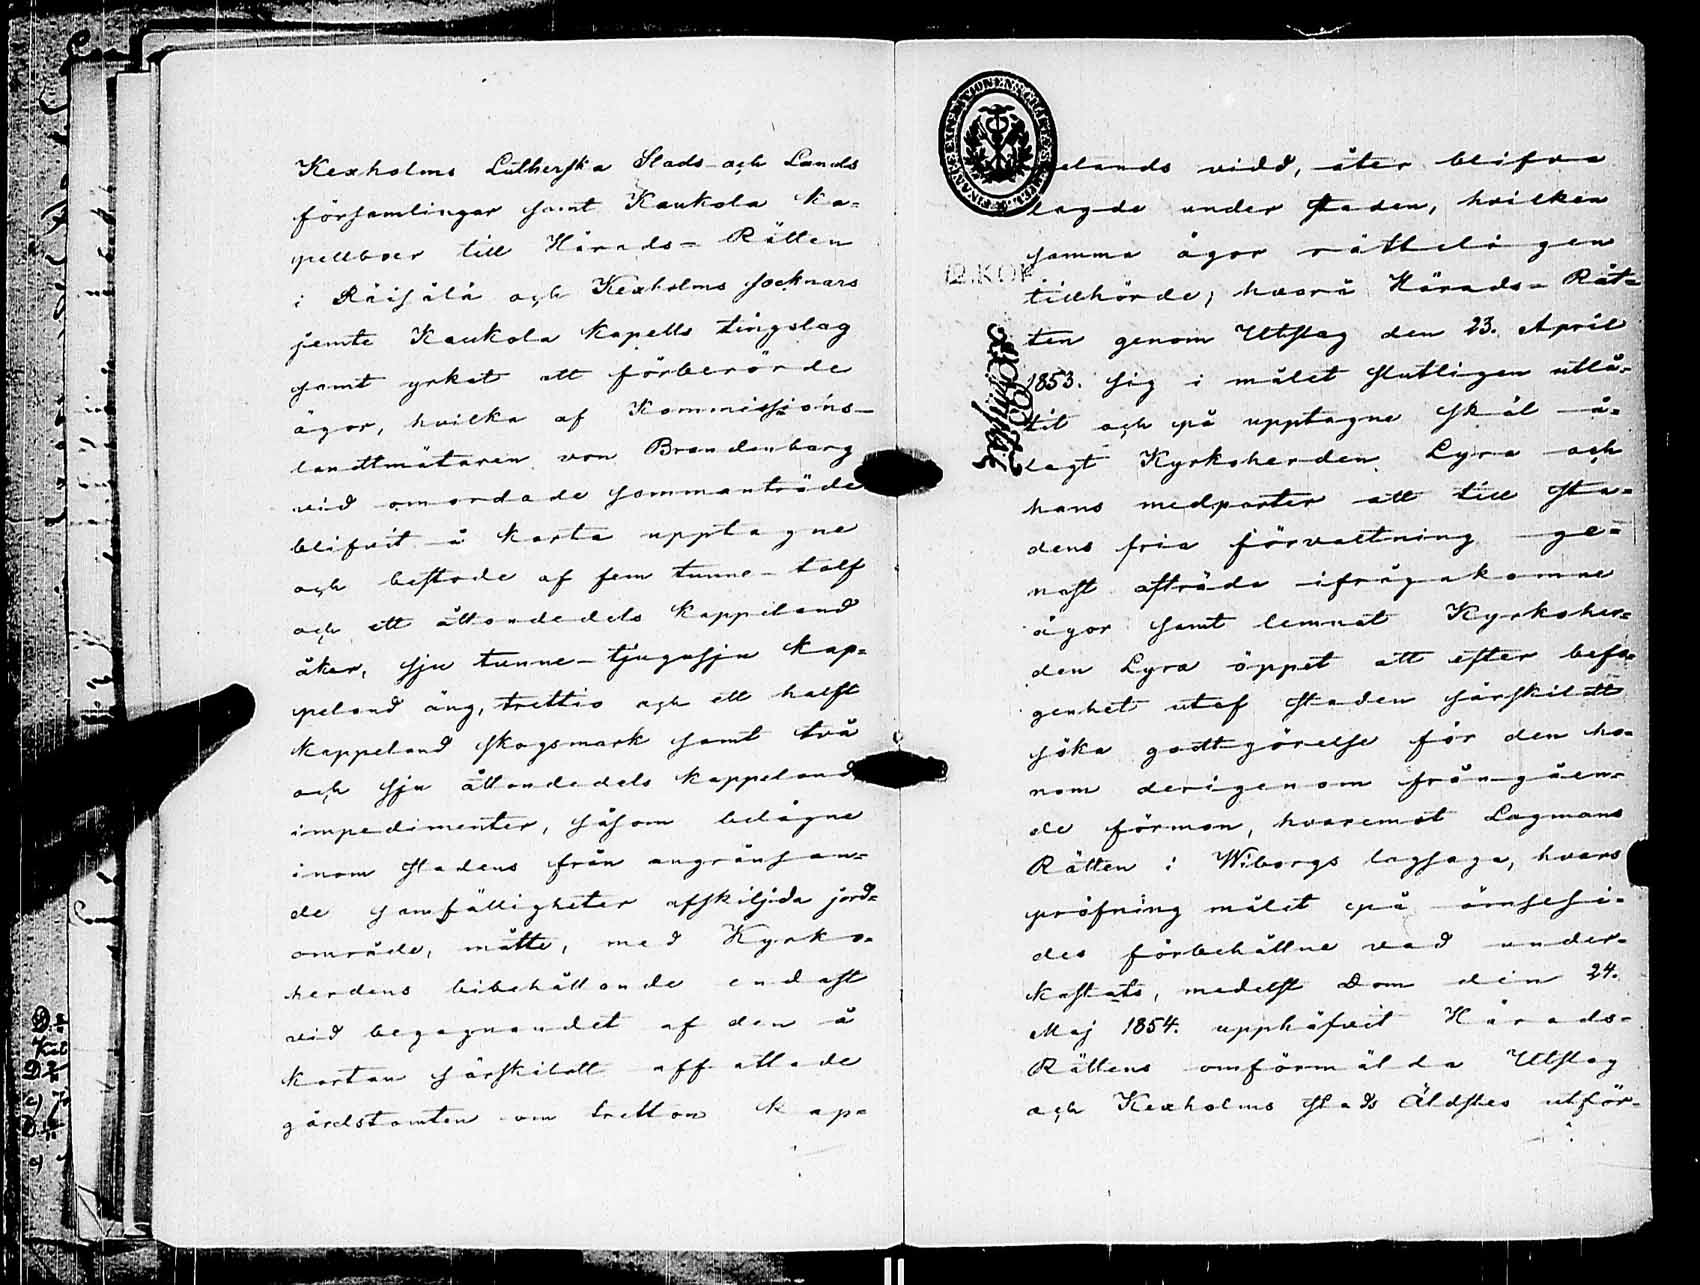 Kexholms Lutherska Stads- och Lands
församlingar samt Kaukola Ka=
pellboer till Härads=Rätten
i Räisälä och Kexholms socknars
jemte Kaukola Kapells tingslag
samt yrkat att förberörde
ägor, hvilka af Kommissions-
landtmätaren von Brandenburg
vid omordade sammanträde
blifvit å karta upptagne
och bestode af fem tunne- tolf
och ett åttondedels kappeland
åker, sju tunne- tjugusju kap=
peland äng, trettio och ett halft
kappeland skogsmark samt två
och sju åttondedels kappeland
impedimenter, såsom belägne
inom stadens från angränsan=
de samfälligheter afskiljda jord=
område, måtte, med Kyrko=
herdens bibehållande endast
vid begagnandet af den å
kartan särskildt affattade
gårdstomten om tretton kap=
pelands vidd, åter blifva
lagde under staden, hvilken
samma ägor rätteligen
tillhörde; hvarå Härads=Rät=
ten genom Utslag den 23. April
1853. sig i målet slutligen utlå=
tit och på upptagne skäl å=
lagt Kyrkoherden Lyra och
hans medparter att till sta=
dens fria förvaltning ge=
nast afträda ifrågakomne
ägor samt lemnat Kyrkoher=
den Lyra öppet att efter befo=
genhet utaf staden särskildt
söka godtgörelse för den ho=
nom derigenom frångåen=
de förmon, hvaremot Lagmans
Rätten i Wiborgs lagsaga, hvars
pröfning målet på ömsesi=
des förbehållne vad under=
kastats, medelst Dom den 24.
Maj 1854. upphäfvit Härads=
Rättens omförmälda Utslag
och Kexholms stads Äldstes utför=
12 KOP